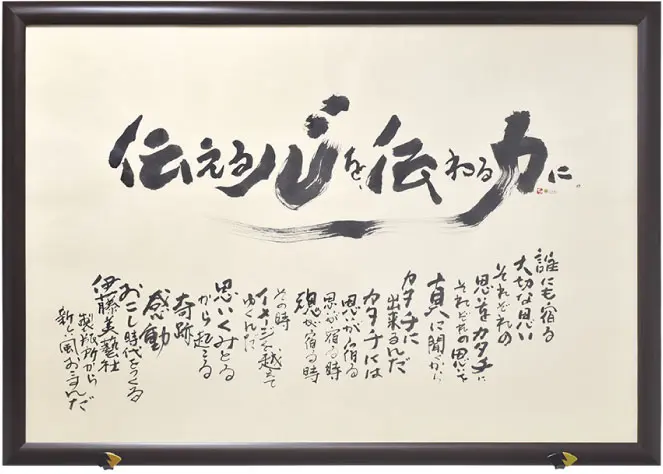 伝える心を、伝わる力に。
誰にも宿る
大切な思い
それぞれの
思をカタチに
それぞれの思いを
真に聞くから
カタチに
出来るんだ
カタチには
思いが宿る
思が宿る時
魂が宿る時
その時
イメージを越えて
ゆくんだ
思いくみとる
から起こる
奇跡
感動
おこし時代をつくる
伊藤美藝社
製版所から
新しい風おこすんだ